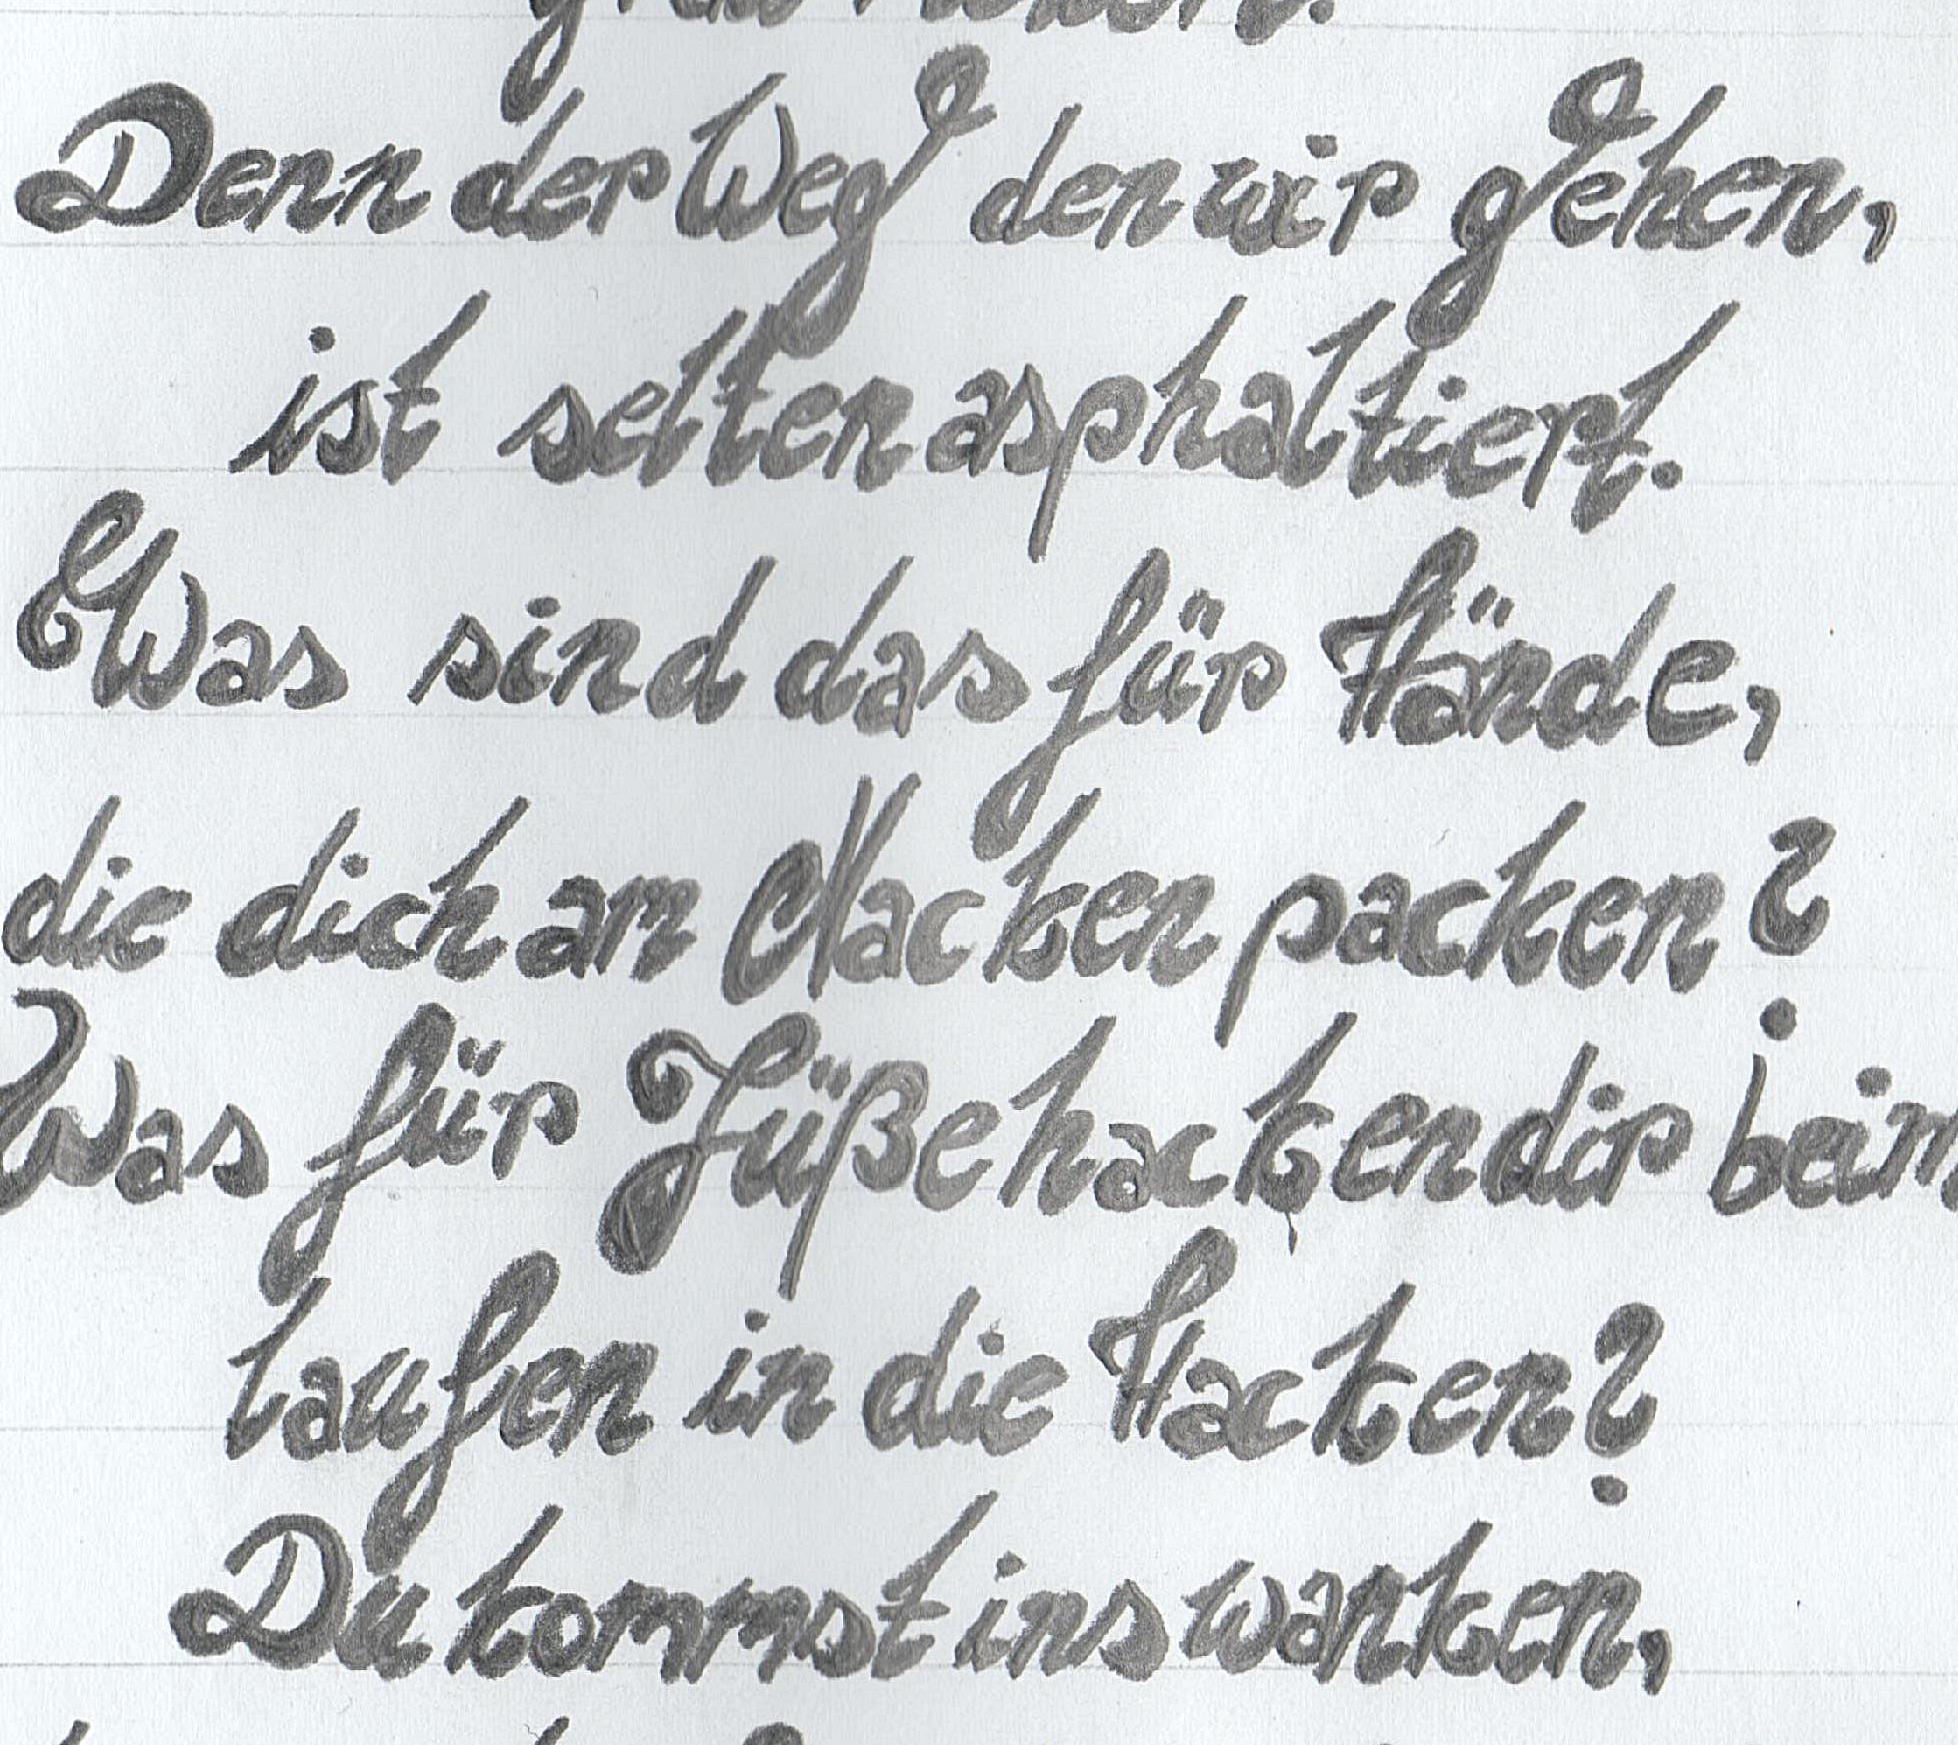 Denn der Weg den wir gehen,
ist selten asphaltiert.
Was sind das für Hände,
die dich am Nacken packen?
Was für Füße hacken dir beim
laufen in die Hacken?
Du kommst ins wanken,